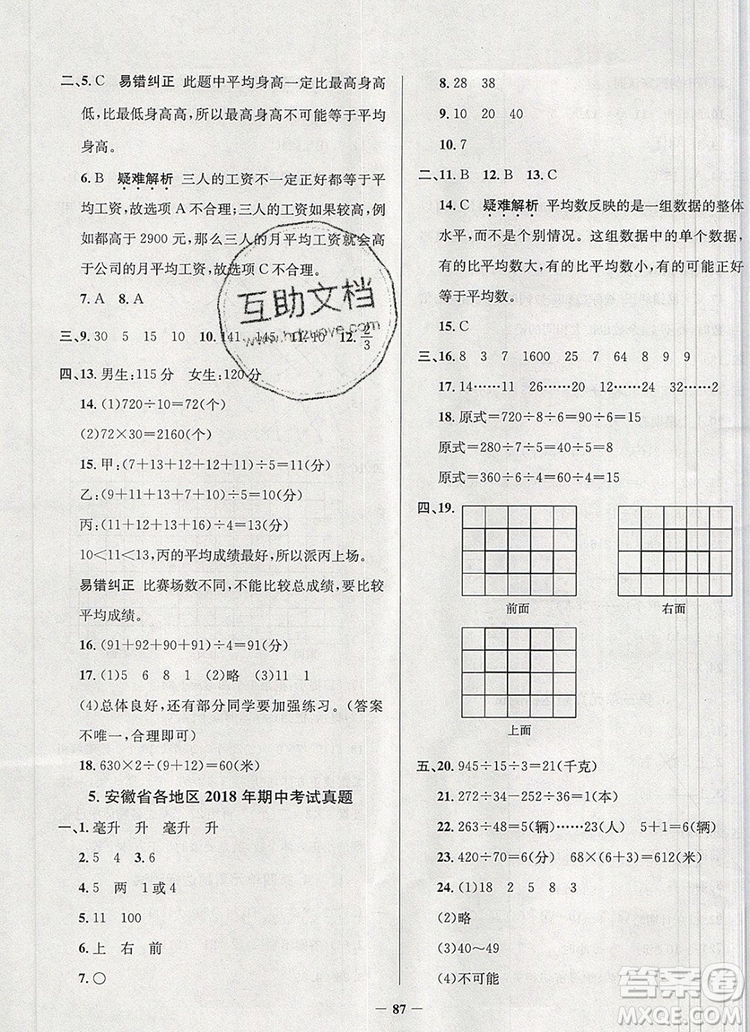 二、5. C 易错纠正 此题中平均身高一定比最高身高
低，比最低身高高，所以最高身高不可能等于平均
身高。
6. B 疑难解析 三人的工资不一定正好都等于平
均工资，故选项A不合理；三人的工资如果较高，
都高于2900元，那么三人的月平均工资就会高
于公司的月平均工资，故选项C不合理。
7. A 8. A
三、9. 30 5 15 10 10. 141 145 11. 40 12. 2/3
四、13. 男生：115分 女生：120分
14. (1)720÷10=72(个)
(2)72×30=2160(个)
15. 甲：(7+13+12+12+11)÷5=11(分)
乙：(9+11+11+9)÷4=10(分)
丙：(11+13+12+16)÷4=13(分)
10<11<13，丙的平均成绩最好，所以派丙上场。
易错纠正 比赛场数不同，不能比较总成绩，要比较
平均成绩。
16. (91+92+90+91)÷4=91(分)
17. (1)5 6 8 1 (2)略 (3)11 1
(4)总体良好，还有部分同学要加强练习。(答案
不唯一，合理即可)
18. 630×2÷(9+12)=60(米)
5. 安徽省各地区2018年期中考试真题
一、1. 毫升 升 毫升 升
2. 5 4 3. 6
4. 5 两 1或4
5. 11 100
6. 上 右 前
7. ○
8. 28 38
9. 10 20 40
10. 7
二、11. B 12. B 13. C
14. C 疑难解析 平均数反映的是一组数据的整体
水平，而不是个别情况。这组数据中的单个数据，
有的比平均数大，有的比平均数小，有的可能正好
等于平均数。
15. C
三、16. 8 3 7 1600 25 7 64 8 9 9
17. 14……17 11……20 32 4……22
18. 原式=720÷8÷9=90÷9=10
原式=280÷7÷5=40÷5=8
原式=450÷5÷6=90÷6=15
四、19.
前面
右面
上面
五、20. 945÷15÷3=21(千克)
21. 272÷34=8(元) 352÷32=11(本)
22. 263÷48=5(辆)……23(人) 5+1=6(辆)
23. 420÷70=6(分) 68×(6+3)=612(米)
24. (1)18 2 5 8 3
(2)略
(3)40～49
(4)不可能
87
互助文档
答案圈
MXQE.COM